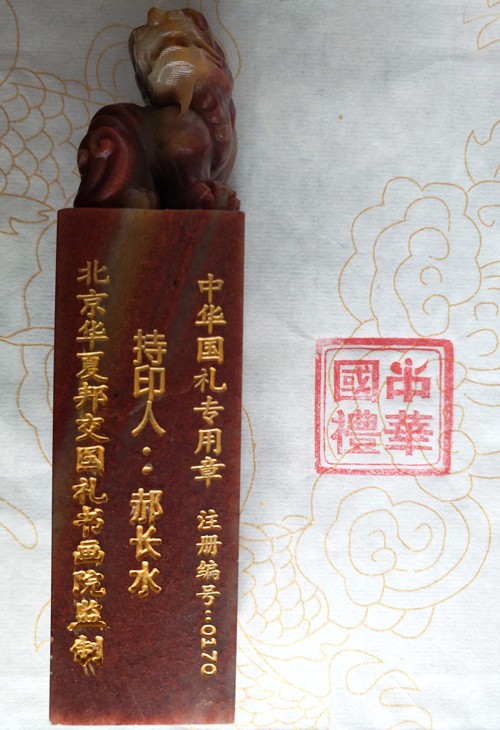 中华国礼专用章 注册编号:0170
持印人:郝长水
北京华夏邦交国礼书画院监制
中華
國禮